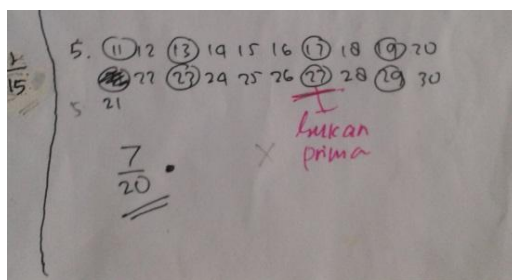 5. 11 12 13 14 15 16 17 18 19 20
22 23 24 25 26 27 28 29 30
21
5
15
bukan
prima
7
20
X